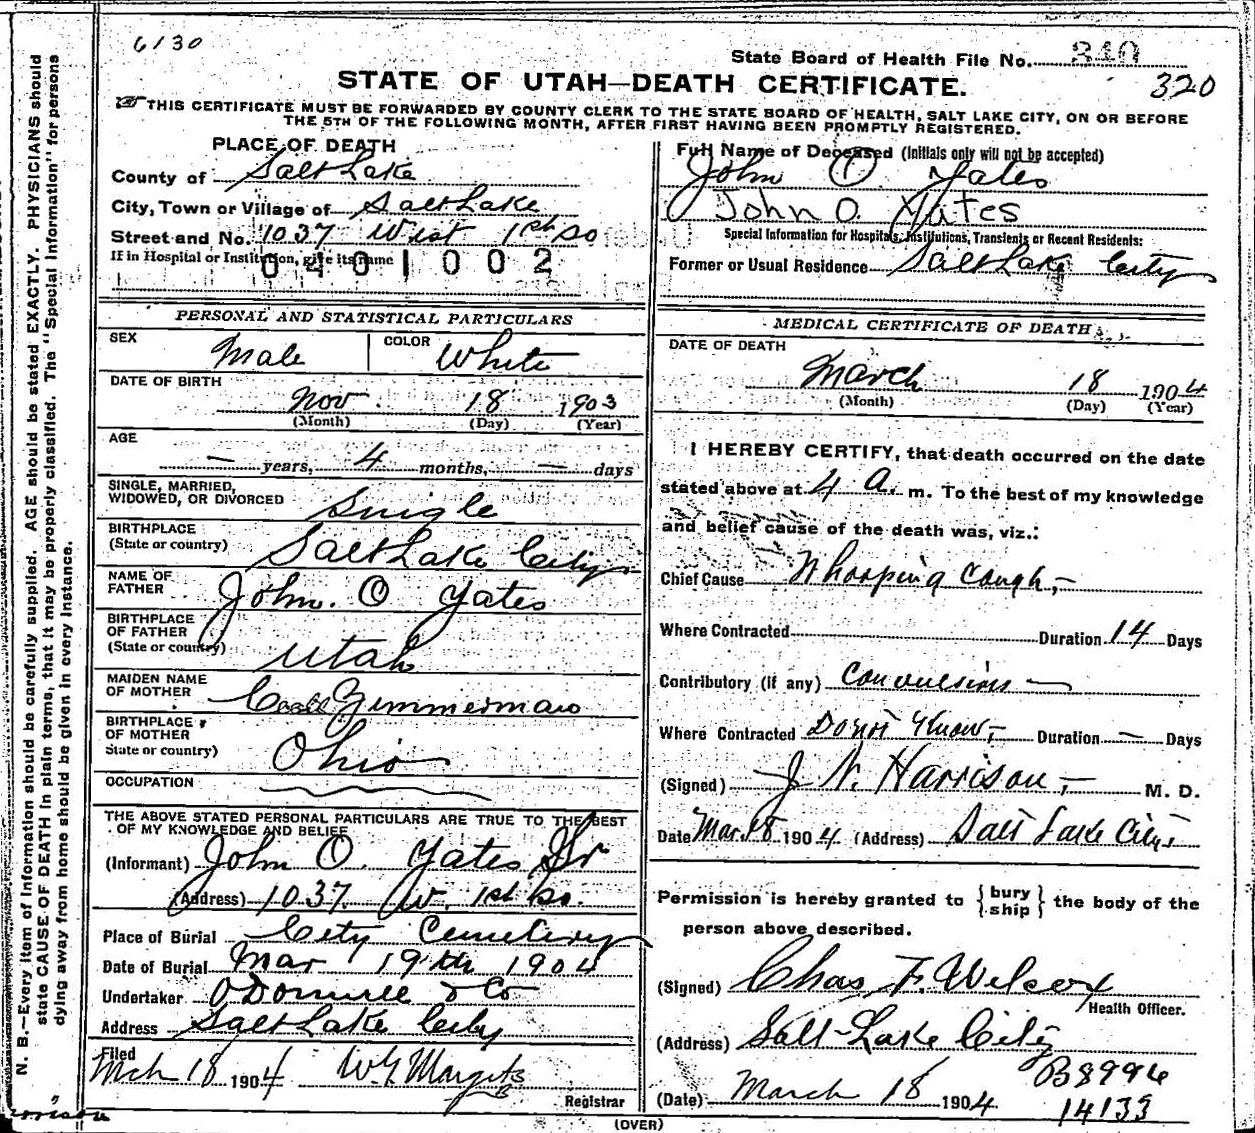 6130
State Board of Health File No. 340
320
STATE OF UTAH—DEATH CERTIFICATE.
THIS CERTIFICATE MUST BE FORWARDED BY COUNTY CLERK TO THE STATE BOARD OF HEALTH, SALT LAKE CITY, ON OR BEFORE
THE 5TH OF THE FOLLOWING MONTH, AFTER FIRST HAVING BEEN PROMPTLY REGISTERED.
PLACE OF DEATH
County of Salt Lake
City, Town or Village of Salt Lake
Street and No. 1037 West 1st So
If in Hospital or Institution, give its name
0401002
Full Name of Deceased (Initials only will not be accepted)
John O Yates
John O. Yates
Special Information for Hospitals, Institutions, Transients or Recent Residents:
Former or Usual Residence Salt Lake City
PERSONAL AND STATISTICAL PARTICULARS
SEX Male COLOR White
DATE OF BIRTH
Nov 18 1903
(Month) (Day) (Year)
AGE
— years, 4 months, — days
SINGLE, MARRIED,
WIDOWED, OR DIVORCED Single
BIRTHPLACE
(State or country) Salt Lake City
NAME OF
FATHER John. O Yates
BIRTHPLACE
OF FATHER
(State or country) Utah
MAIDEN NAME
OF MOTHER Zimmerman
BIRTHPLACE
OF MOTHER
State or country) Ohio
OCCUPATION
THE ABOVE STATED PERSONAL PARTICULARS ARE TRUE TO THE BEST
OF MY KNOWLEDGE AND BELIEF
(Informant) John O. Yates Sr
(Address) 1037 W. 1st So.
Place of Burial City Cemetery
Date of Burial Mar 19th 1904
Undertaker O'Donnell & Co
Address Salt Lake City
Filed
Mch 18 1904 W G
Registrar
MEDICAL CERTIFICATE OF DEATH
DATE OF DEATH
March 18 1904
(Month) (Day) (Year)
I HEREBY CERTIFY, that death occurred on the date
stated above at 4 A. m. To the best of my knowledge
and belief cause of the death was, viz.:
Chief Cause Whooping Cough,-
Where Contracted Duration 14 Days
Contributory (if any) Convulsions —
Where Contracted Don't Know,- Duration — Days
(Signed) J N. Harrison,- M. D.
Date Mar. 18 1904 (Address) Salt Lake City
Permission is hereby granted to { bury
ship } the body of the
person above described.
(Signed) Chas. F. Wilcox
Health Officer.
(Address) Salt-Lake City
B8996
(Date) March 18 1904
14133
(OVER)
N. B.—Every item of information should be carefully supplied. AGE should be stated EXACTLY. PHYSICIANS should
state CAUSE OF DEATH in plain terms, that it may be properly classified. The "Special Information" for persons
dying away from home should be given in every instance.